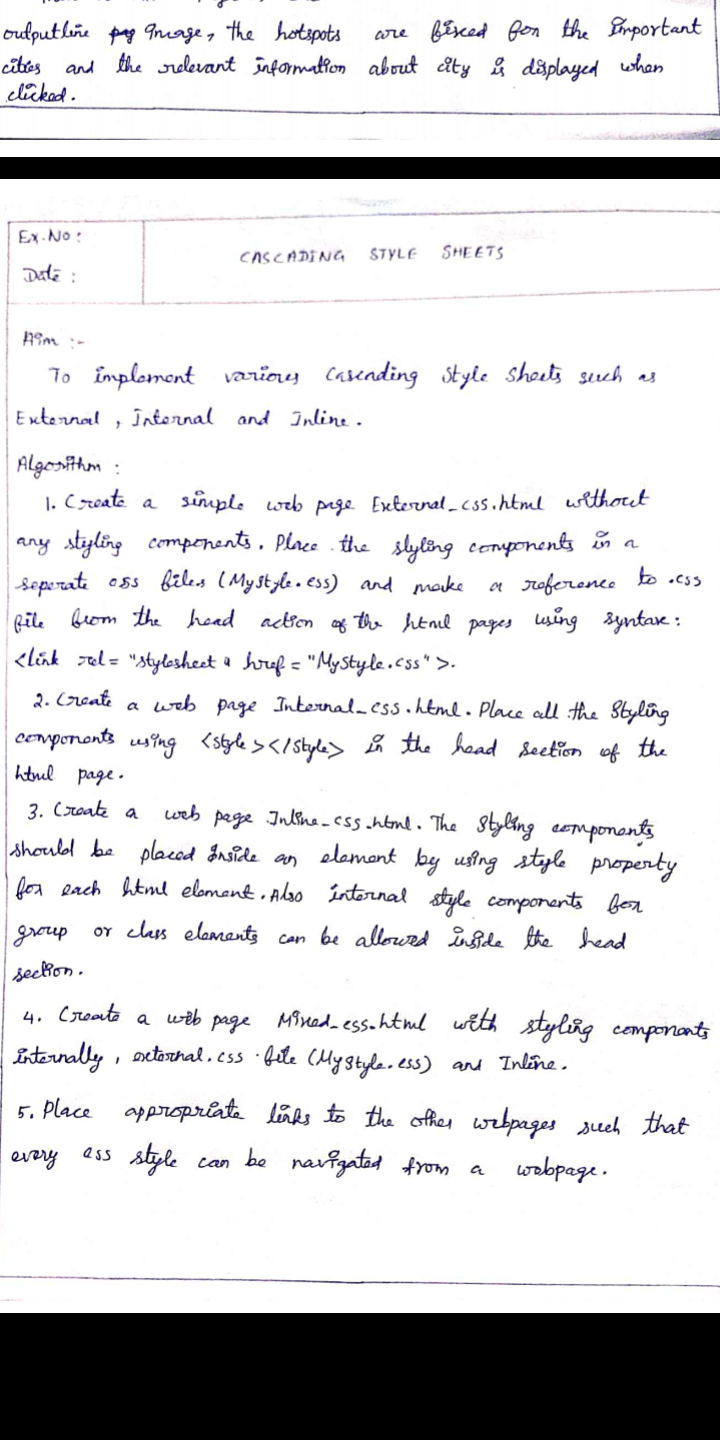 outputline pag Image, the hotspots are fixed for the important
cities and the relevant information about city is displayed when
clicked.
Ex.No :
CASCADING STYLE SHEETS
Date :
Aim :-
To implement various Cascading Style Sheets such as
External, Internal and Inline.
Algorithm :
1. Create a simple web page External_css.html without
any styling components. Place the styling components in a
seperate css files (MyStyle.css) and make a reference to .css
file from the head action of the html pages using syntax:
<link rel= "stylesheet" href = "MyStyle.css">.
2. Create a web page Internal_css.html. Place all the Styling
components using <style></style> in the head section of the
html page.
3. Create a web page Inline_css.html. The Styling components
should be placed Inside an element by using style property
for each html element. Also internal style components for
group or class elements can be allowed inside the head
section.
4. Create a web page Mixed_css.html with styling components
internally, external.css file (MyStyle.css) and Inline.
5. Place appropriate links to the other webpages such that
every css style can be navigated from a webpage.